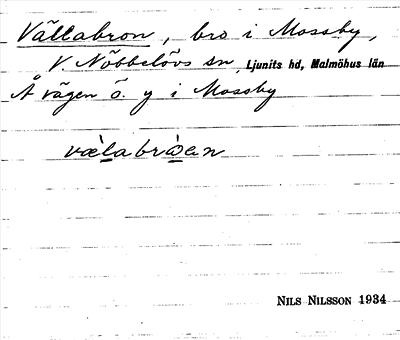 Vällabron, bro i Mossby,
V Nöbbelövs sn, Ljunits hd, Malmöhus län
Å vägen ö. y i Mossby
NILS NILSSON 1934